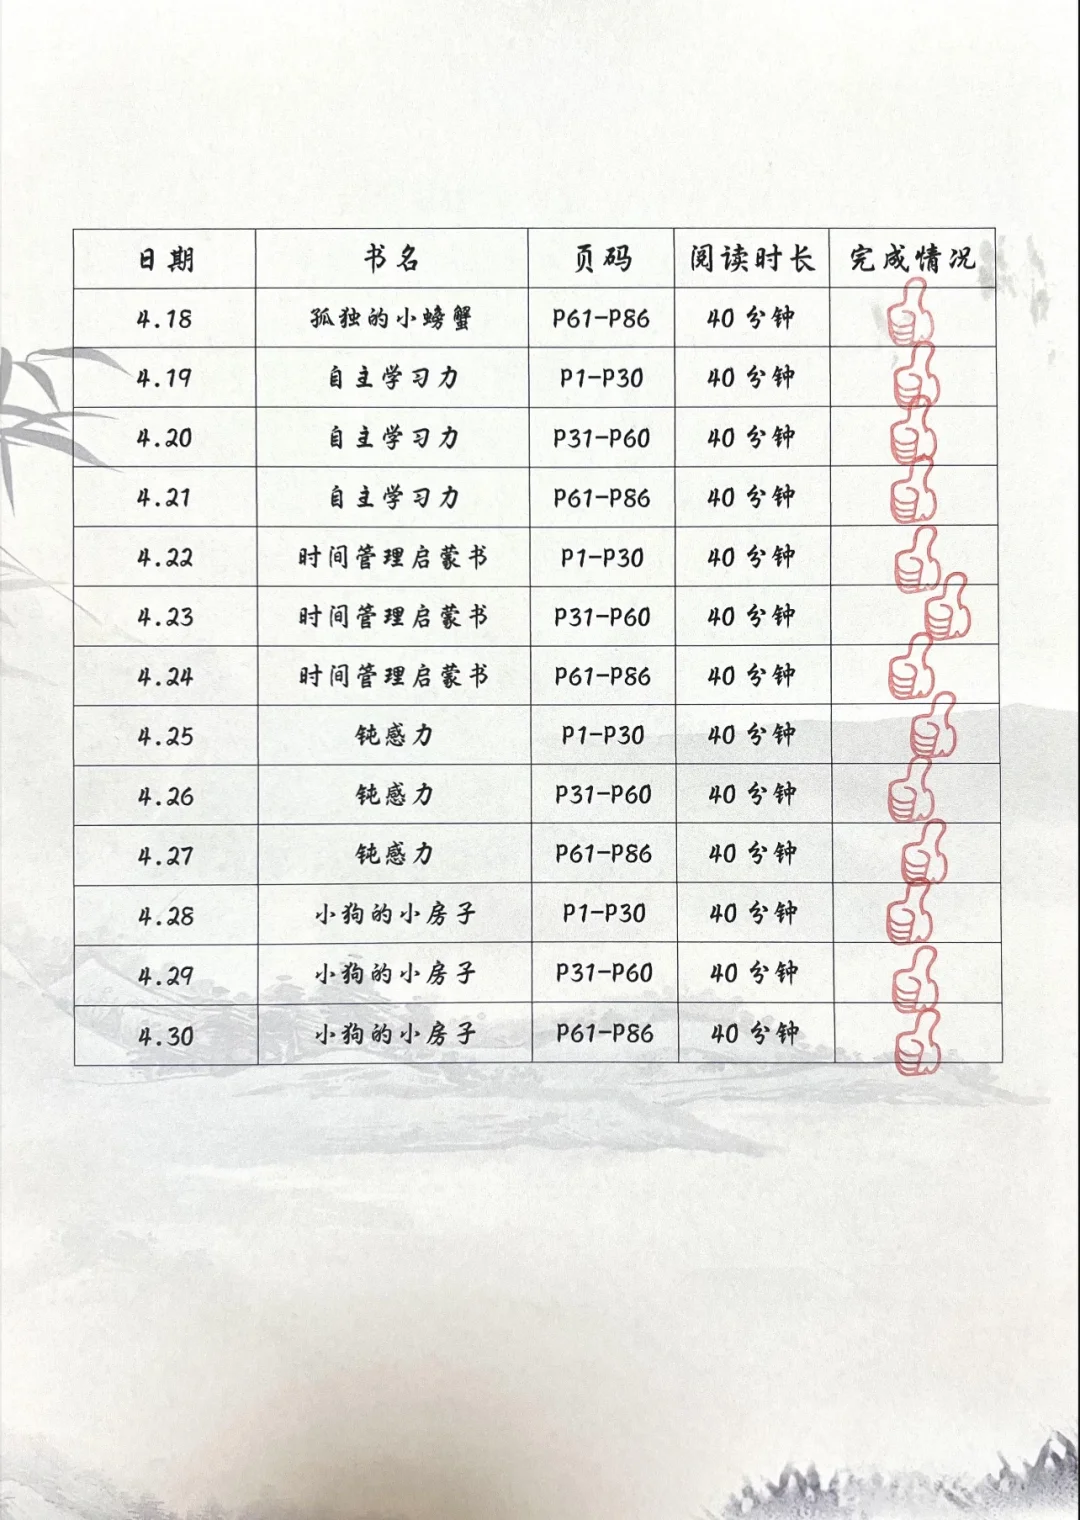 日期 书名 页码 阅读时长 完成情况
4.18 孤独的小螃蟹 P61-P86 40分钟
4.19 自主学习力 P1-P30 40分钟
4.20 自主学习力 P31-P60 40分钟
4.21 自主学习力 P61-P86 40分钟
4.22 时间管理启蒙书 P1-P30 40分钟
4.23 时间管理启蒙书 P31-P60 40分钟
4.24 时间管理启蒙书 P61-P86 40分钟
4.25 钝感力 P1-P30 40分钟
4.26 钝感力 P31-P60 40分钟
4.27 钝感力 P61-P86 40分钟
4.28 小狗的小房子 P1-P30 40分钟
4.29 小狗的小房子 P31-P60 40分钟
4.30 小狗的小房子 P61-P86 40分钟